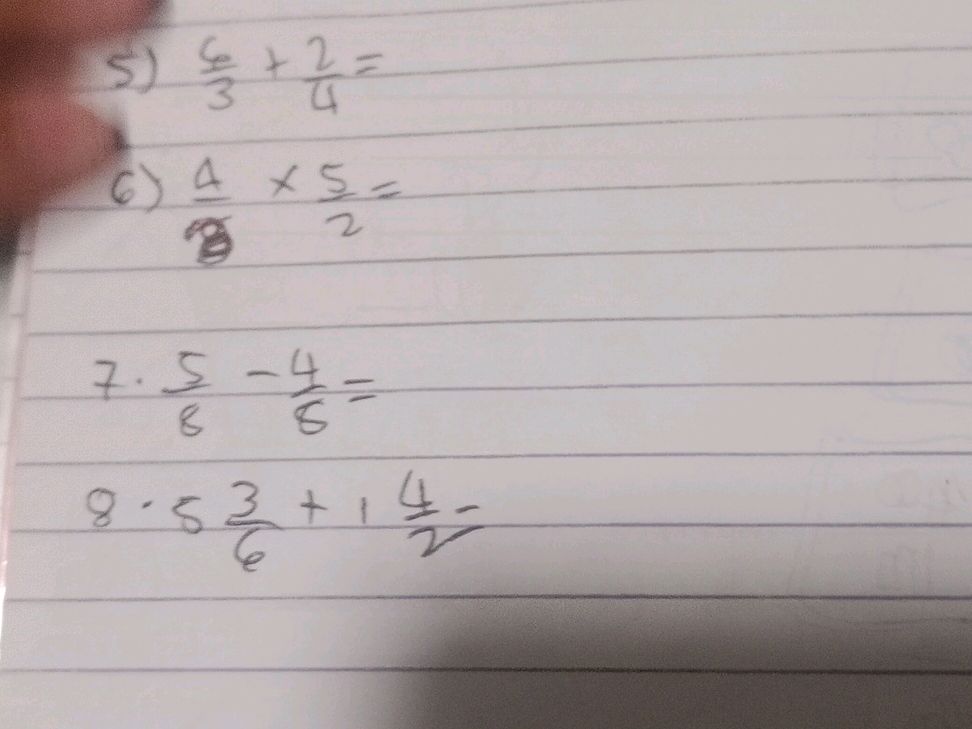 5) 6/3 + 2/4 =
6) 4/8 × 5/2 =
7. 5/8 - 4/8 =
8. 5 3/6 + 1 4/2 -